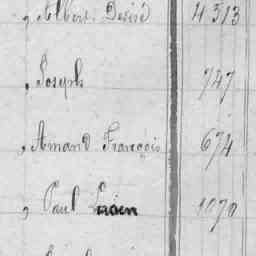 , Albert Desiré 4513
, Joseph 747
, Amand François 674
, Paul Lucien 1070